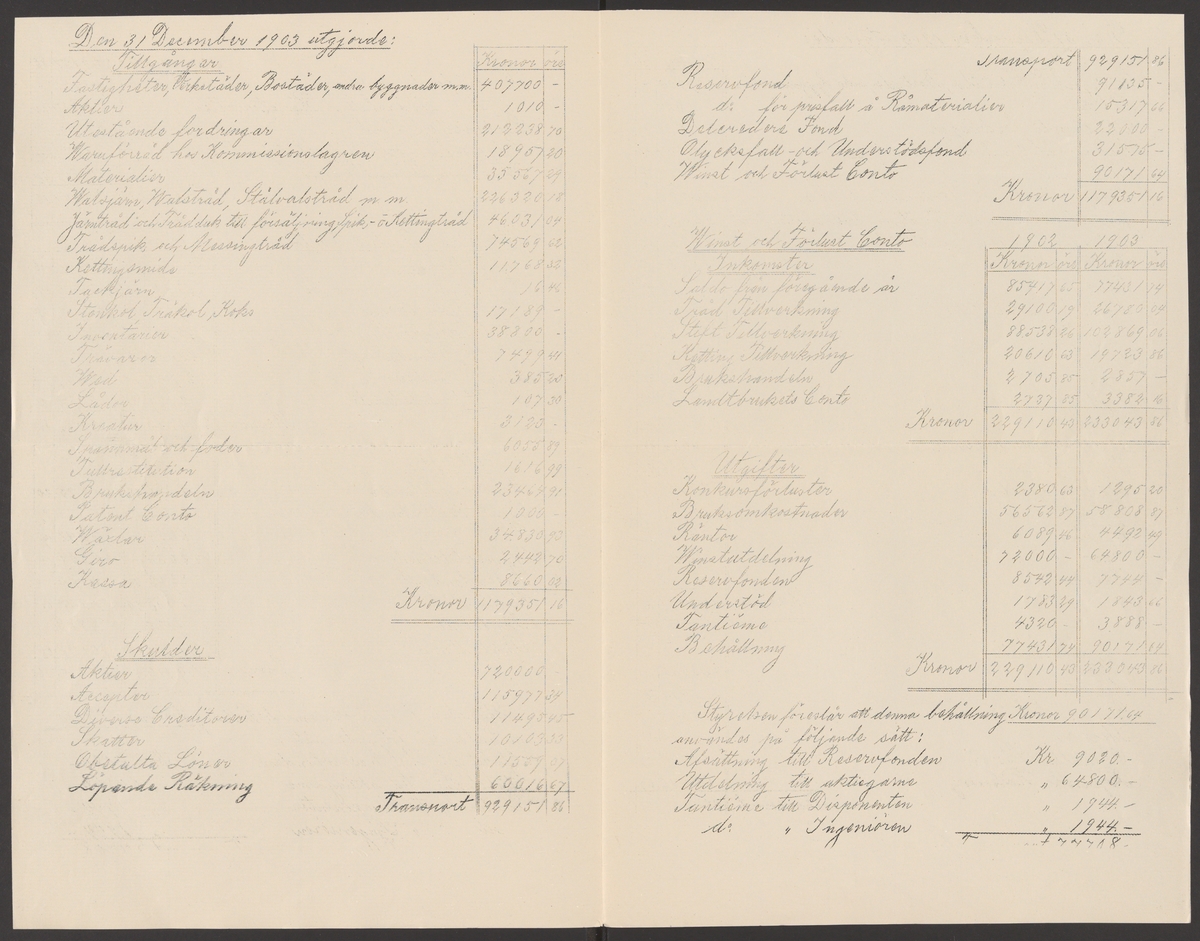 Den 31 December 1903 utgjorde:
Tillgångar Kronor öre
Fastigheter, Verkstäder, Bostäder, andra byggnader m.m. 407700 -
Aktier 1010 -
Utestående fordringar 212238 70
Waruförråd hos Kommissionslagren 18951 20
Materialier 35567 29
Walsjärn, Walstråd, Stålvalstråd m m. 226320 18
Järntråd och Trådduk till försäljning, spik- o Kettingtråd 46031 64
Trådspik och Messingtråd 74569 62
Kettingsmide 11768 32
Tackjärn 16 46
Stenkol Träkol, Koks 17189 -
Inventarier 38300 -
Trävaror 7499 44
Wed 385 20
Läder 107 30
Kreatur 3123 -
Spannmål och foder 6056 89
Tullrestitution 1616 99
Brukshandeln 23469 91
Patent Conto 1000 -
Wäxlar 34830 93
Giro 2442 70
Kassa 8660 02
Kronor 1179351 16
Skulder
Aktier 720000 -
Accepter 115977 29
Diverse Creditorer 11495
Skatter 10103 33
Obetalta Löner 11559 67
Löpande Räkning 60016 67
Transport 929151 86
Transport 929151 86
Reservfond 91135 -
d:o för prisfall å Råmaterialier 15317 66
Delcreders Fond 22000 -
Olycksfall- och Understödsfond 31575 -
Winst och Förlust Conto 90171 64
Kronor 1179351 16
Winst och Förlust Conto 1902 1903
Inkomster Kronor öre Kronor öre
Saldo från föregående år 85417 65 77431 74
Tråd Tillverkning 29100 19 26780 04
Stift Tillverkning 88538 26 102869 06
Ketting Tillverkning 20610 63 19723 86
Brukshandeln 2705 85 2857 -
Landtbrukets Conto 2737 85 3382 16
Kronor 229110 43 233043 86
Utgifter
Konkursförluster 2380 63 1295 20
Bruksomkostnader 56562 87 58808 87
Räntor 6089 46 4492 49
Winstutdelning 72000 - 64800 -
Reservfonden 8542 44 7744 -
Understöd 1783 29 1843 66
Tantiéme 4320 - 3888 -
Behållning 77431 74 90171 64
Kronor 229110 43 233043 86
Styrelsen föreslår att denna behållning Kronor 90171.64
användes på följande sätt:
Afsättning till Reservfonden Kr 9020.-
Utdelning till aktieägarne " 64800.-
Tantiéme till Disponenten " 1944.-
d:o " Ingeniören " 1944.-